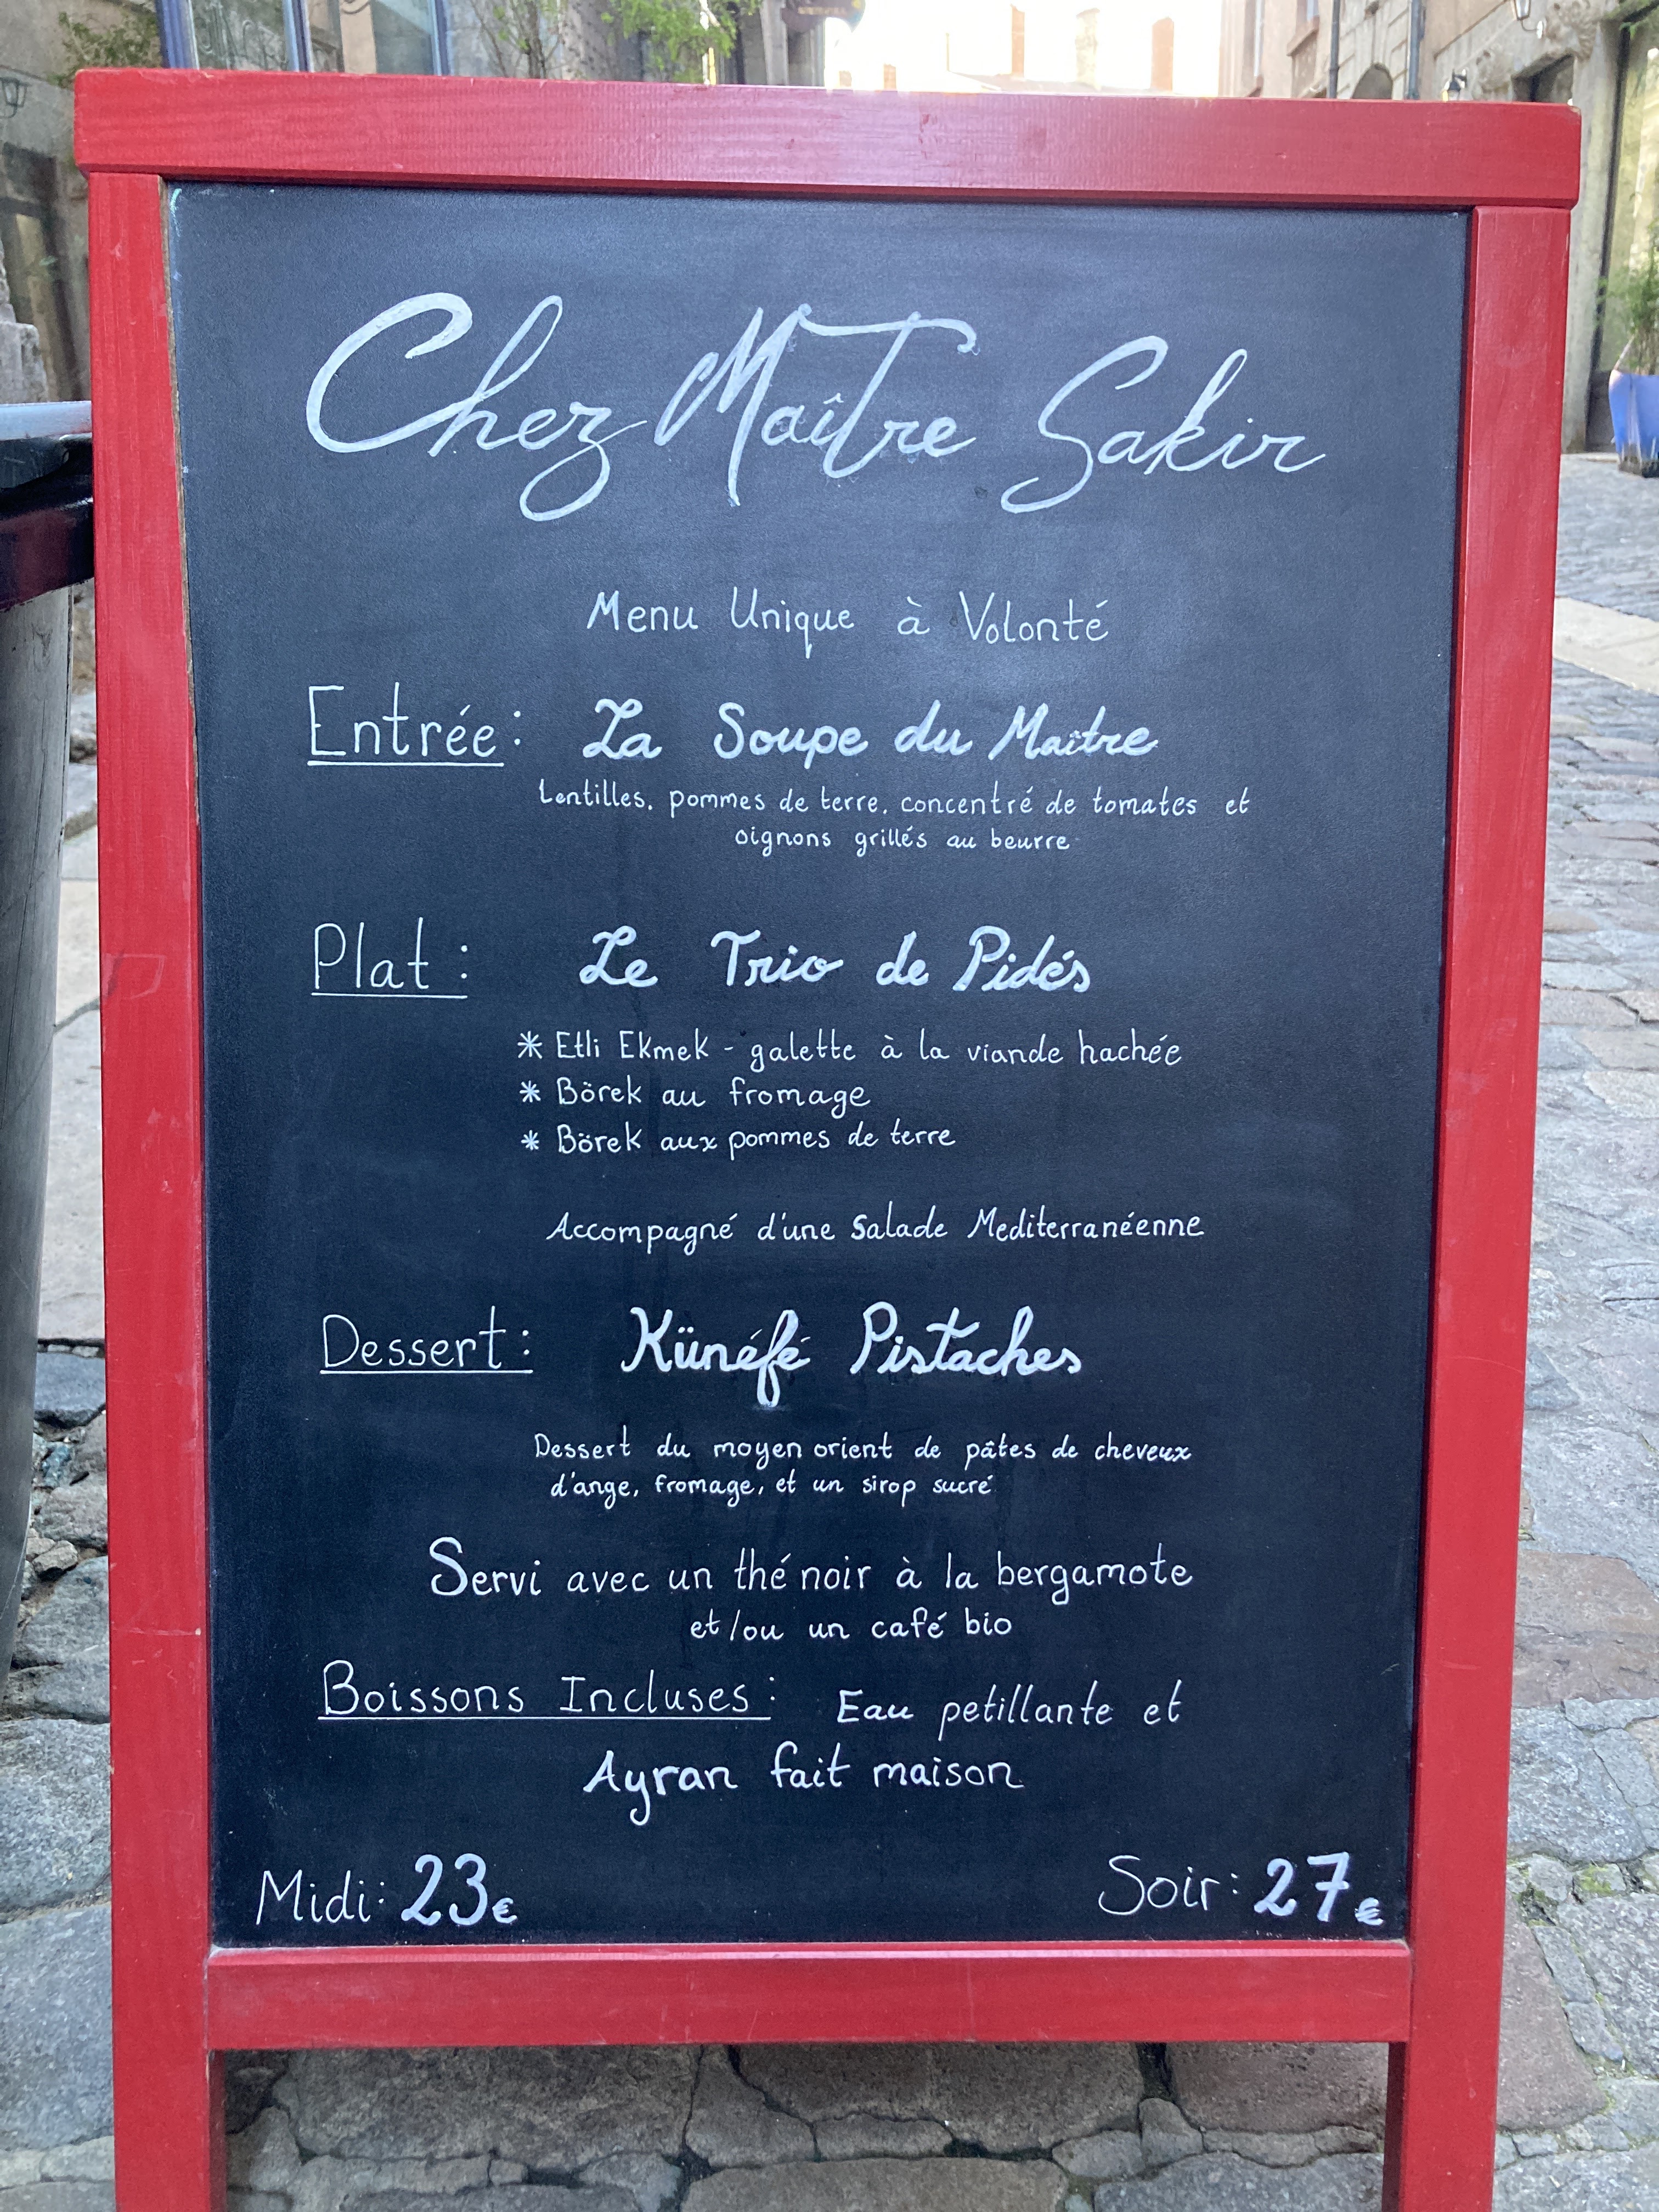 Chez Maître Sakir
Menu Unique à Volonté
Entrée : La Soupe du Maître
Lentilles, pommes de terre, concentré de tomates et
oignons grillés au beurre
Plat : Le Trio de Pidés
* Etli Ekmek - galette à la viande hachée
* Börek au fromage
* Börek aux pommes de terre
Accompagné d'une Salade Mediterranéenne
Dessert : Künéfé Pistaches
Dessert du moyen orient de pâtes de cheveux
d'ange, fromage, et un sirop sucré
Servi avec un thé noir à la bergamote
et/ou un café bio
Boissons Incluses : Eau petillante et
Ayran fait maison
Midi : 23€ Soir : 27€